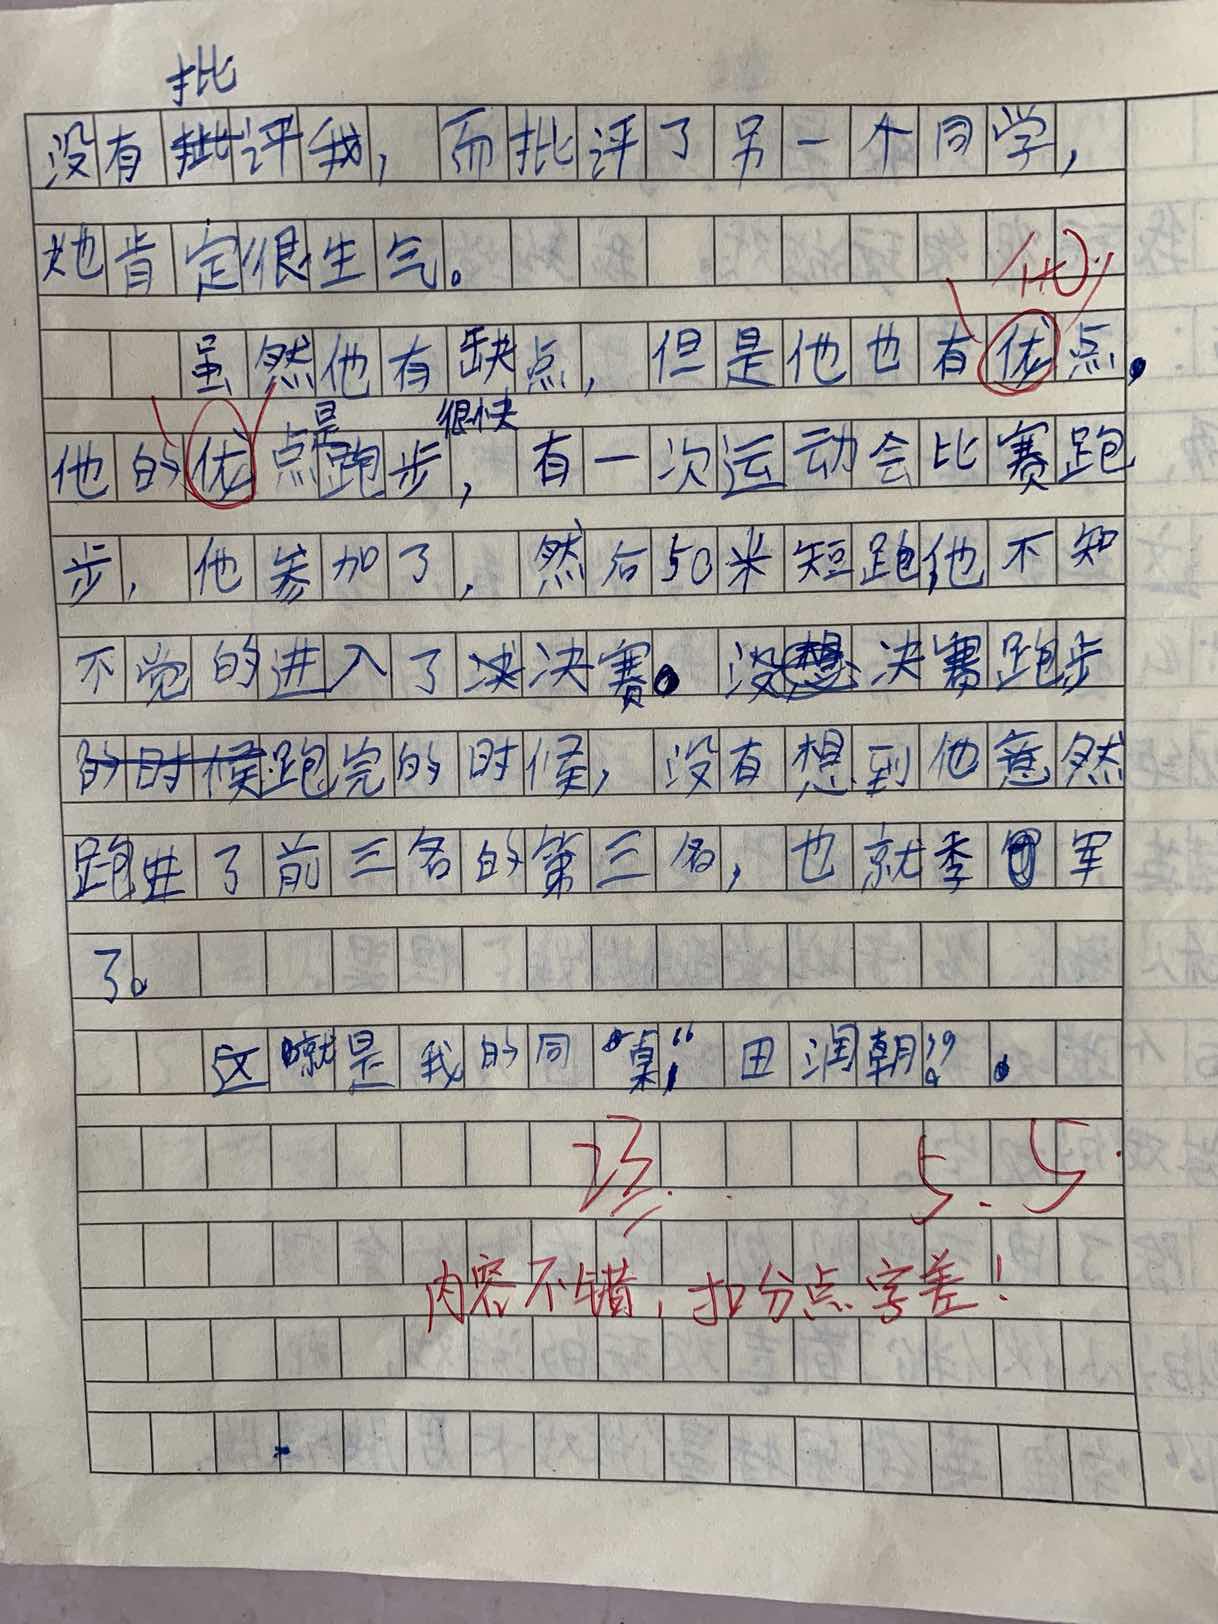 批
没有批评我，而批评了另一个同学，
她肯定很生气。
虽然他有缺点，但是他也有优点，
他的优点是跑步很快，有一次运动会比赛跑
步，他参加了，然后50米短跑他不知
不觉的进入了决决赛。没想决赛跑步
的时候跑完的时候，没有想到他竟然
跑进了前三名的第三名，也就季军
了。
这就是我的同“桌”，田润朝？。
5.5
内容不错，扣分点字差！